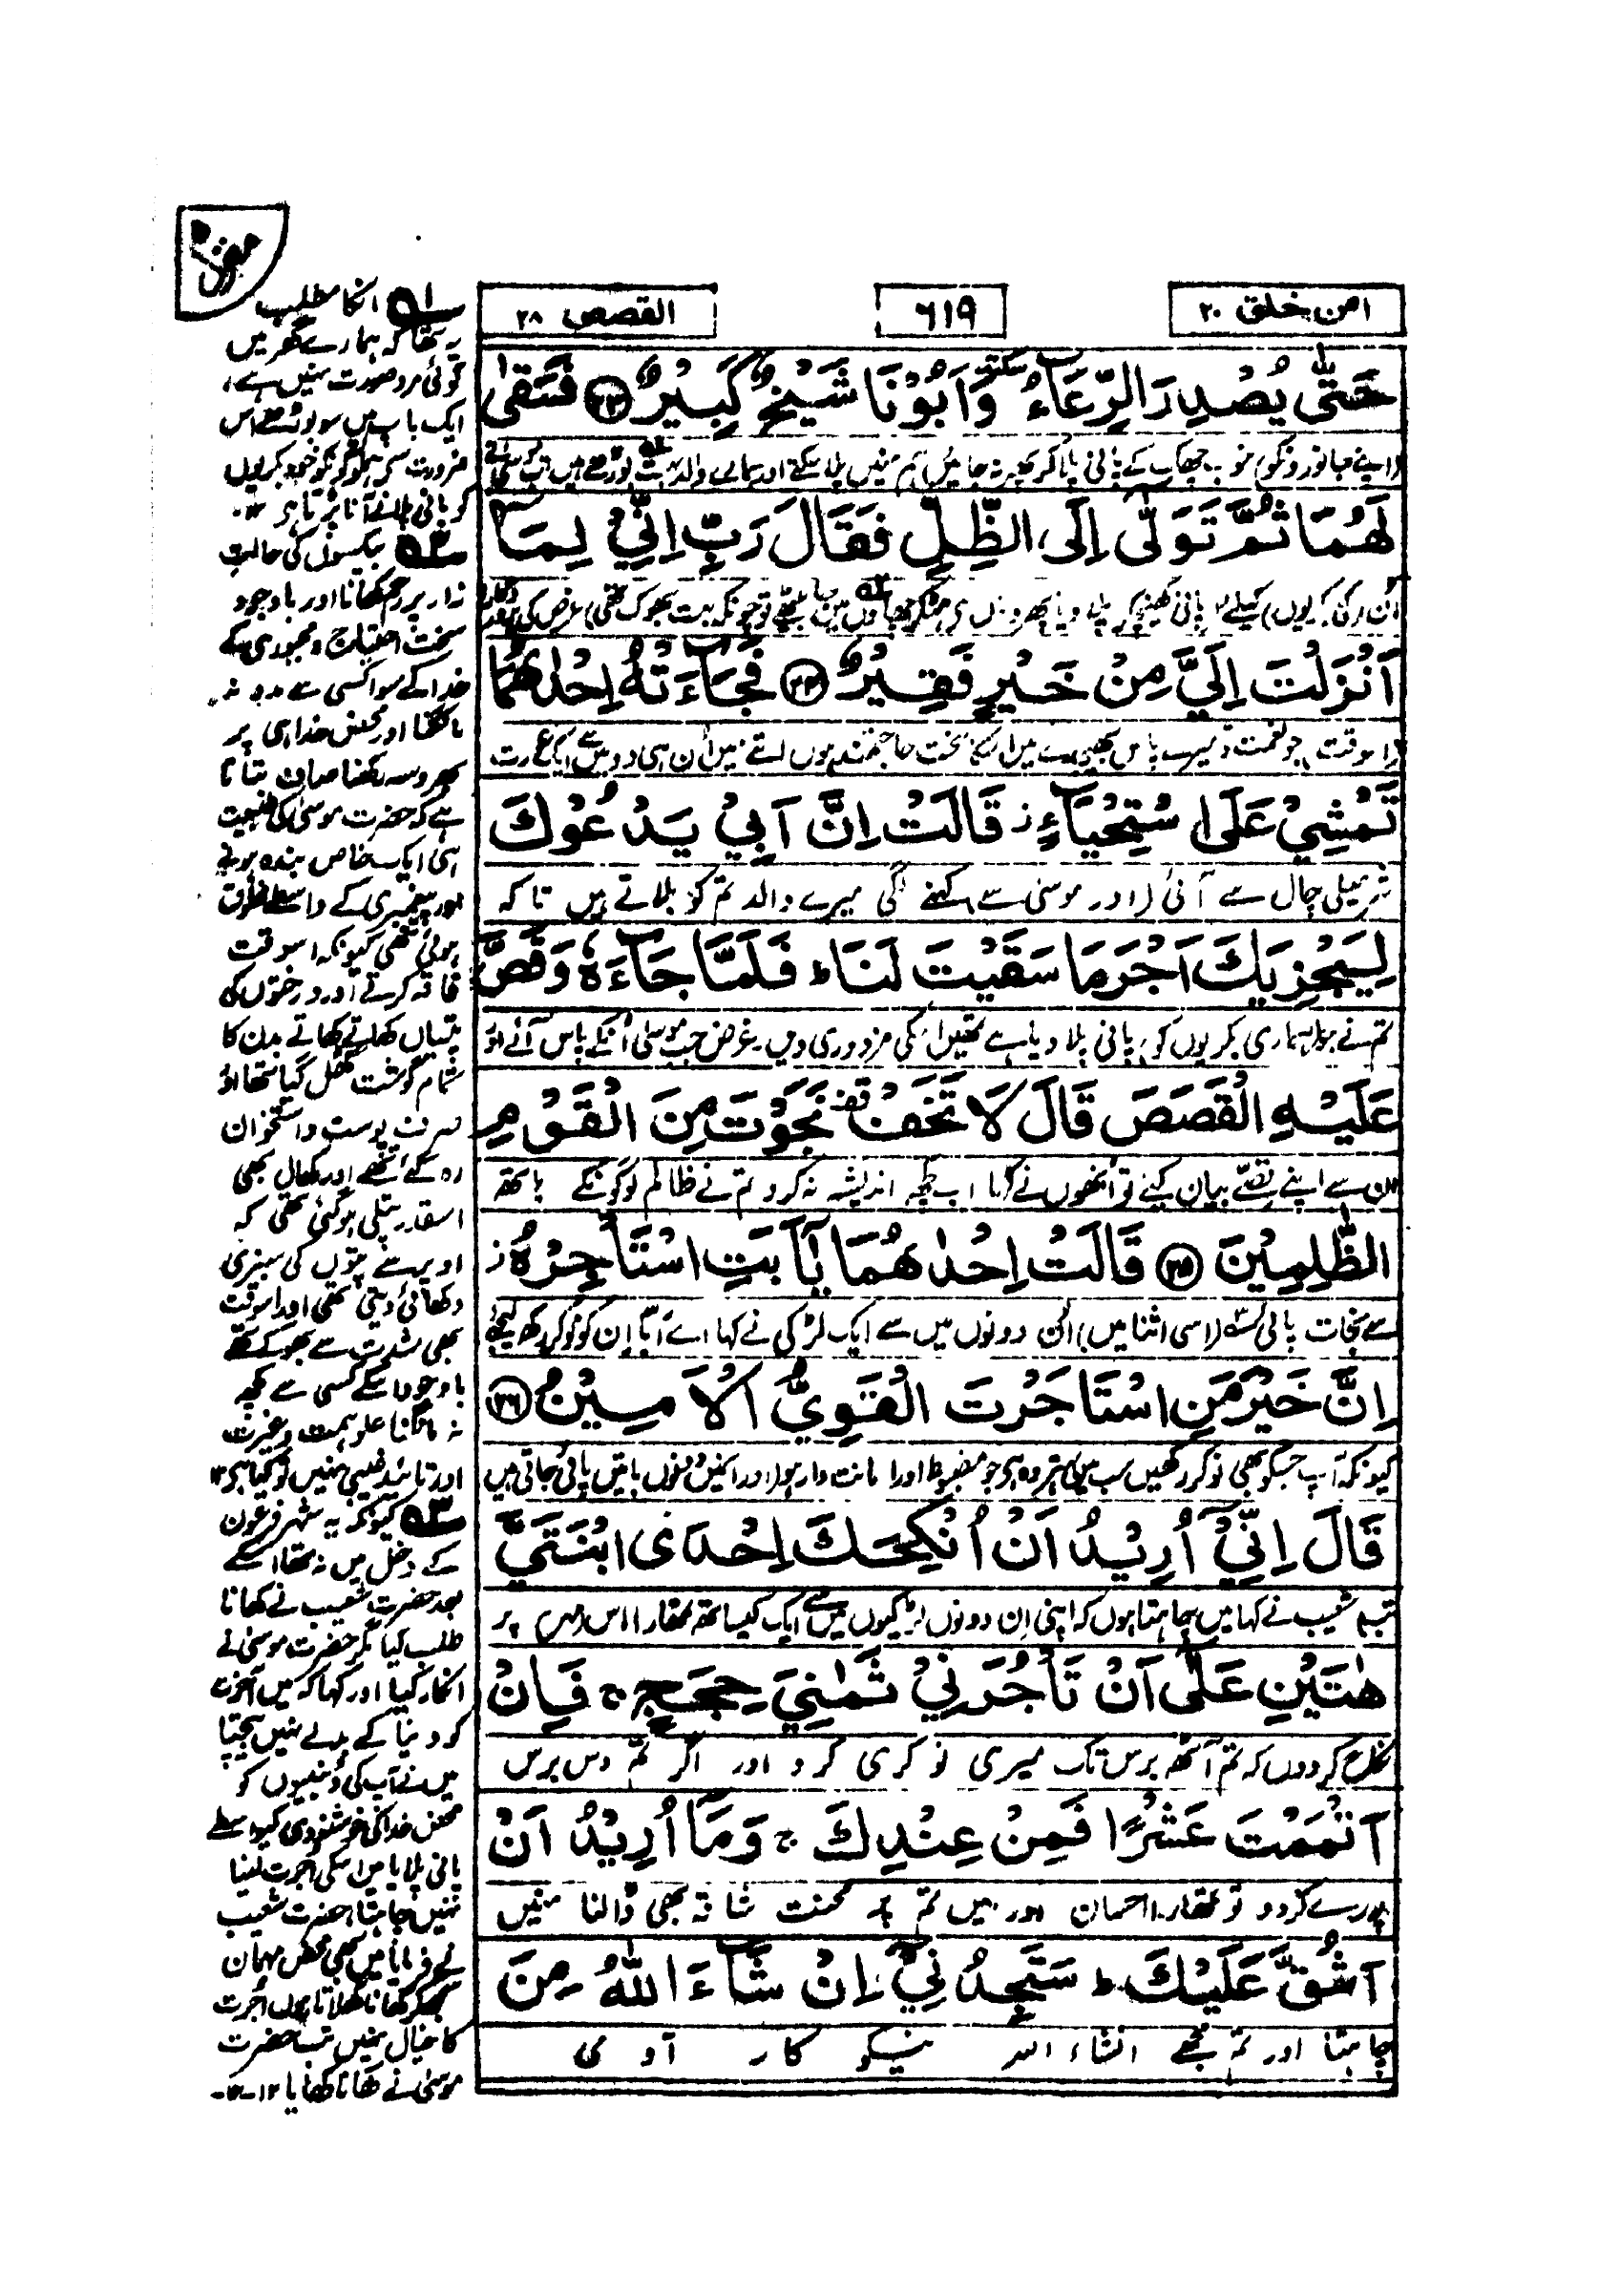 امن خلق ٢٠
٦١٩
القصص ٢٨
حَتّٰى يُصْدِرَ الرِّعَآءُ سكتة وَاَبُوْنَا شَيْخٌ كَبِيْرٌ ﴿٢٣﴾ فَسَقٰى
(اپنے جانورونکو) خوب چھک کے پانی پلا کر پھر نہ جائیں ہم نہیں پلا سکتے اور ہمارے والد بہت بوڑھے ہیں تب موسیٰ نے
لَهُمَا ثُمَّ تَوَلّٰٓى اِلَى الظِّلِّ فَقَالَ رَبِّ اِنِّيْ لِمَآ
اُن (کی بکریوں) کیلئے پانی کھینچ کر پلا دیا پھر وہاں سے ہٹکر چھاؤں میں جا بیٹھے تو چونکہ بہت بھوک تھی) عرض کی پروردگارا
اَنْزَلْتَ اِلَيَّ مِنْ خَيْرٍ فَقِيْرٌ ﴿٢٤﴾ فَجَآءَتْهُ اِحْدٰىهُمَا
(اسوقت) جو نعمت تو میرے پاس بھیجدے میں اسکا سخت حاجتمند ہوں اتنے میں اُن ہی دو میں سے ایک عورت
تَمْشِيْ عَلَى اسْتِحْيَآءٍ ز قَالَتْ اِنَّ اَبِيْ يَدْعُوْكَ
شرمیلی چال سے آئی (اور موسیٰ سے) کہنے لگی میرے والد تم کو بلاتے ہیں تاکہ
لِيَجْزِيَكَ اَجْرَ مَا سَقَيْتَ لَنَا ط فَلَمَّا جَآءَهٗ وَقَصَّ
تم نے جو ہماری بکریوں کو پانی پلا دیا ہے تمھیں اسکی مزدوری دیں۔ غرض جب موسیٰ اُنکے پاس آئے اور
عَلَيْهِ الْقَصَصَ قَالَ لَا تَخَفْ قف نَجَوْتَ مِنَ الْقَوْمِ
اُن سے اپنے قصّے بیان کیے تو اُنھوں نے کہا اب کچھ اندیشہ نہ کرو تم نے ظالم لوگونکے ہاتھ
الظّٰلِمِيْنَ ﴿٢٥﴾ قَالَتْ اِحْدٰىهُمَا يٰٓاَبَتِ اسْتَاْجِرْهُ ز
سے نجات پائی ۳ (اسی اثنا میں) اُن دونوں میں سے ایک لڑکی نے کہا اے ابّا اِن کو نوکر رکھ لیجئے
اِنَّ خَيْرَ مَنِ اسْتَاْجَرْتَ الْقَوِيُّ الْاَمِيْنُ ﴿٢٦﴾
کیونکہ آپ جسکو بھی نوکر رکھیں سب میں بہتر وہ ہی جو مضبوط اور امانت دار ہو اور انمیں دونوں باتیں پائی جاتی ہیں
قَالَ اِنِّيْٓ اُرِيْدُ اَنْ اُنْكِحَكَ اِحْدَى ابْنَتَيَّ
تب شعیب نے کہا میں چاہتا ہوں کہ اپنی اِن دونوں لڑکیوں میں سے ایک کیساتھ تمھارا اس (مہر) پر
هٰتَيْنِ عَلٰٓى اَنْ تَاْجُرَنِيْ ثَمٰنِيَ حِجَجٍ ج فَاِنْ
نکاح کر دوں کہ تم آٹھ برس تک میری نوکری کرو اور اگر تم دس برس
اَتْمَمْتَ عَشْرًا فَمِنْ عِنْدِكَ ج وَمَآ اُرِيْدُ اَنْ
پورے کر دو تو تمھارا احسان اور میں تم پر محنت شاقہ بھی ڈالنا نہیں
اَشُقَّ عَلَيْكَ ط سَتَجِدُنِيْٓ اِنْ شَآءَ اللّٰهُ مِنَ
چاہتا اور تم مجھے انشاء اللہ نیکو کار آدمی
۱ انکا مطلب
یہ تھا کہ ہمارے گھر میں
کوئی مرد مدت نہیں ہے،
ایک باپ ہیں سو بوڑھے اس
ضرورت سے ہم لوگونکو خود بکریوں
کو پانی پلانے آنا پڑتا ہے ۱۲۔
۲ بیکسوں کی حالت
زار پر رحم کھانا اور باوجود
سخت احتیاج و مجبوری کے
خدا کے سوا کسی سے مدد نہ
مانگنا اور محض خدا ہی پر
بھروسہ رکھنا صاف بتاتا
ہے کہ حضرت موسیٰ کی طبیعت
ہی ایک خاص بندہ ہونے
اور پیغمبری کے واسطے مخلوق
ہوئی تھی کیونکہ اسوقت
فاقہ کرتے اور درختوں کی
پتیاں کھاتے کھاتے بدن کا
تمام گوشت گھل گیا تھا اور
صرف پوست و استخوان
رہ گئے تھے اور کھال بھی
اسقدر پتلی ہوگئی تھی کہ
اوپر سے پتوں کی سبزی
دکھائی دیتی تھی اور اسوقت
بھی شدت سے بھوکے تھے
باوجود اسکے کسی سے کچھ
نہ مانگنا علو ہمت و غیرت
اور تائید غیبی نہیں تو کیا ہے ۱۲
۳ کیونکہ یہ شہر فرعون
کے دخل میں نہ تھا اسکے
بعد حضرت شعیب نے کھانا
طلب کیا مگر حضرت موسیٰ نے
انکار کیا اور کہا کہ میں آخرت
کو دنیا کے بدلے نہیں بیچتا
میں نے آپ کی دنبیوں کو
محض خدا کی خوشنودی کیواسطے
پانی پلایا میں اسکی اجرت لینا
نہیں چاہتا حضرت شعیب
نے فرمایا میں بھی محض مہمان
سمجھکر کھانا کھلاتا ہوں اُجرت
کا خیال نہیں تب حضرت
موسیٰ نے کھانا کھایا ۱۲۔